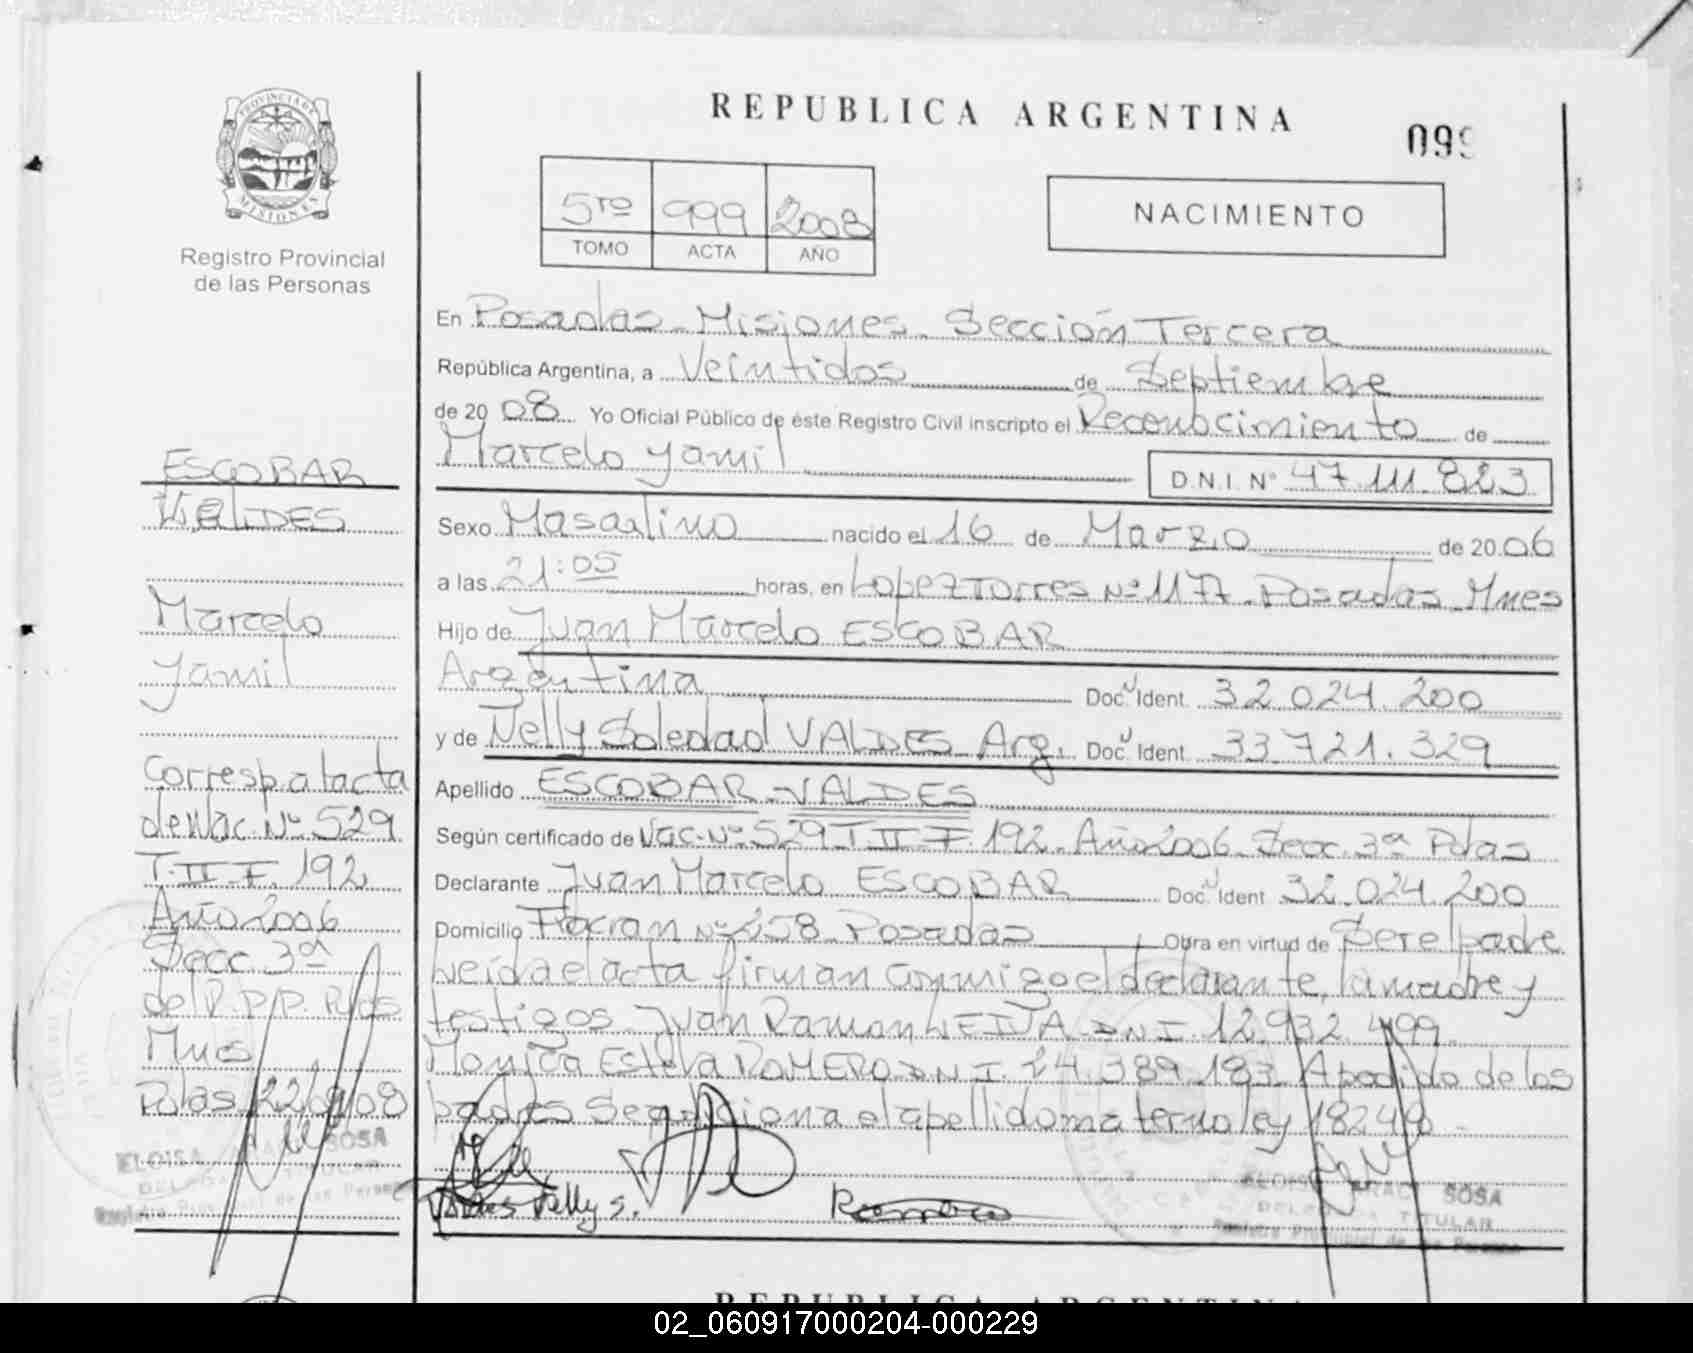 PROVINCIA DE
MISIONES
Registro Provincial
de las Personas
ESCOBAR
VALDES
Marcelo
Yamil
Corresp. a l acta
de Nac. Nº 529
T. II F. 192
Año 2006
Secc 3ª
del R.P.P. Pdas
Mnes
Pdas 22/9/08
ELOISA ARACI SOSA
DELEGADA TITULAR
Registro Provincial de las Personas
REPUBLICA ARGENTINA
099
5to 999 2008
TOMO ACTA AÑO
NACIMIENTO
En Posadas - Misiones - Sección Tercera
República Argentina, a Veintidos de Septiembre
de 20 08 Yo Oficial Público de éste Registro Civil inscripto el Reconocimiento de
Marcelo Yamil D.N.I. Nº 47.111.823
Sexo Masculino nacido el 16 de Marzo de 20 06
a las 21:05 horas, en Lopez Torres Nº 1177 - Posadas Mnes
Hijo de Juan Marcelo ESCOBAR
Argentina Doc. Ident. 32.024.200
y de Nelly Soledad VALDES Arg. Doc. Ident. 33.721.329
Apellido ESCOBAR - VALDES
Según certificado de Nac. Nº 529 T II F. 192 Año 2006 Secc. 3ª Pdas
Declarante Juan Marcelo ESCOBAR Doc. Ident 32.024.200
Domicilio Nº 258 Posadas Obra en virtud de Ser el padre
Leida el acta firman conmigo el declarante, la madre y
testigos Juan Ramon DNI 12.932.499
Monica Estela ROMERO DNI 14.389.183 A pedido de los
padres se adiciona el apellido materno ley 18248 -
Valdes Nelly S.
ELOISA ARACI SOSA
DELEGADA TITULAR
Registro Provincial de las Personas
REPUBLICA ARGENTINA
02_060917000204-000229